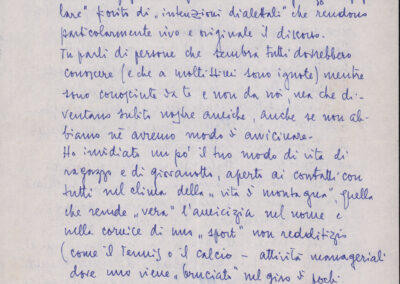 lare" farito di „intenzioni dialettali" che rendono
particolarmente vivo e originale il discorso.
Tu parli di persone che sembra tutti dovrebbero
conoscere (e che a moltissimi sono ignote) mentre
sono conosciute da te e non da noi, ma che di-
ventano subito nostre amiche, anche se non ab-
biamo né avremo modo di avvicinare.
Ho invidiato un po' il tuo modo di vita di
ragazzo e di giovanotto, aperto ai contatti con
tutti nel clima della „vita di montagna", quella
che rende „vera" l'amicizia nel nome e
nella cornice di uno „sport" non redditizio
(come il Tennis o il calcio – attività manageriali
dove uno viene „bruciato" nel giro di pochi